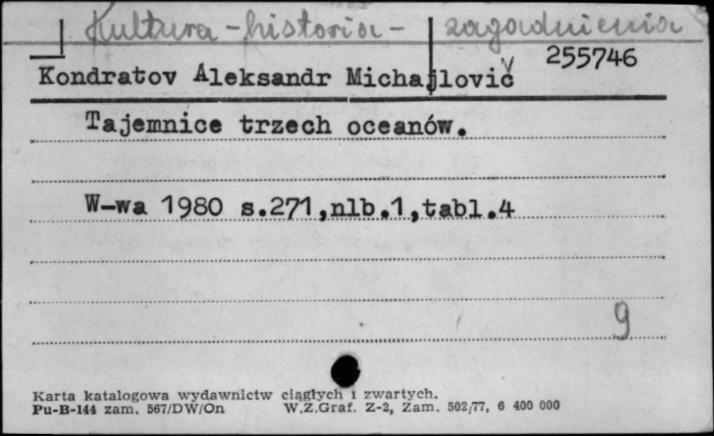 Kultura - historia - zagadnienia
255746
Kondratov Aleksandr Michajlovič
Tajemnice trzech oceanów.
W-wa 1980 s.271,nlb.1,tabl.4
9
Karta katalogowa wydawnictw ciągłych i zwartych.
Pu-B-144 zam. 567/DW/On W.Z.Graf. Z-2, Zam. 502/77, 6 400 000